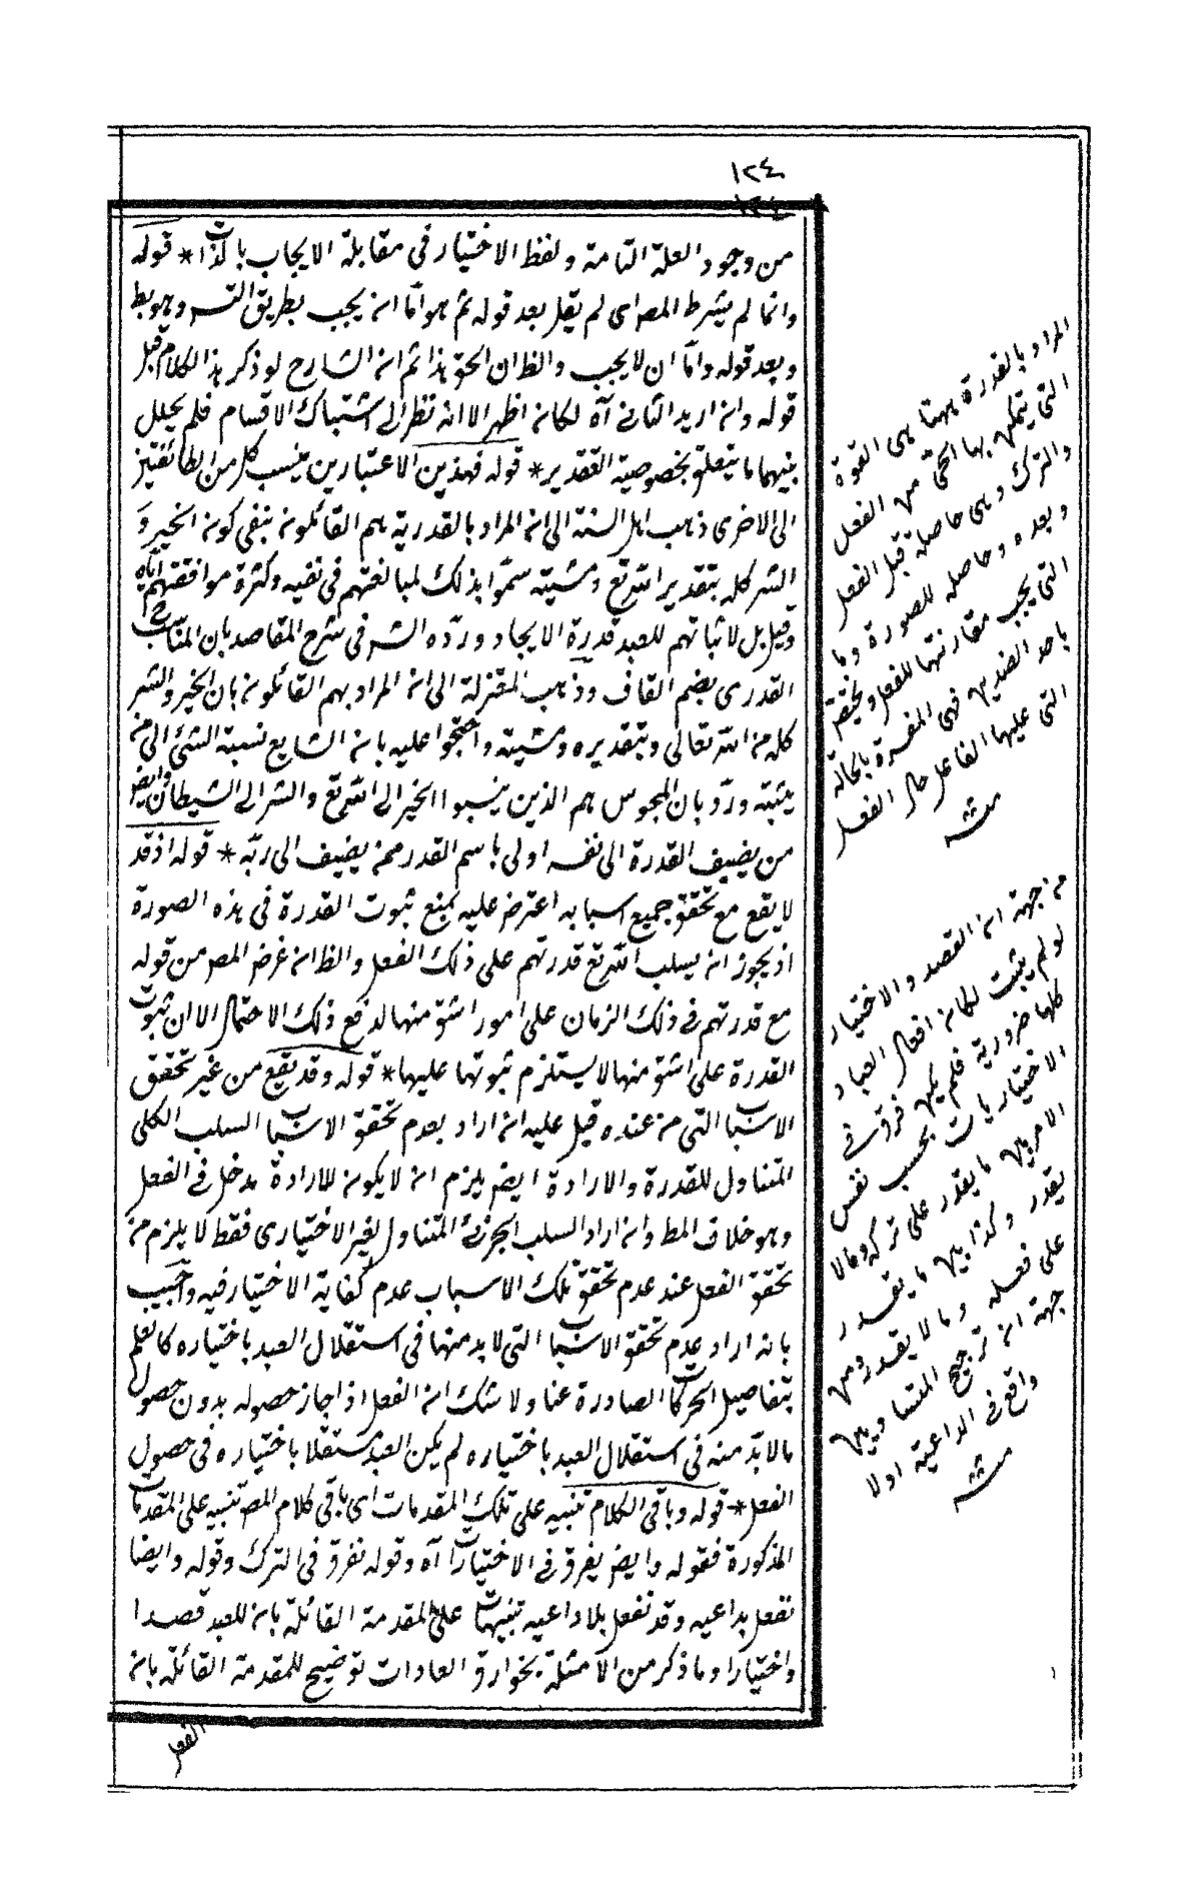 ١٢٤
من وجود العلة التامة ولفظ الاختيار في مقابلة الايجاب بالذات * قوله
وانما لم يشرط المص اى لم يقل بعد قوله ثم هو اما ان يجب بطريق التس وهو بط
وبعد قوله واما ان لا يجب والظ ان الحق هذا ثم ان الشارح لو ذكر هذا الكلام قبل
قوله وان اريد الثانى آه لكان اظهر الا انه نظر الى اشتباك الاقسام فلم يخلل
بينهما ما يتعلق بخصوصية التقدير * قوله فهذين الاعتبارين ينسب كل من الطائفتين
الى الاخرى ذهب اهل السنة الى ان المراد بالقدرية هم القائلون بنفى كون الخير و
الشر كله بتقدير الله تع ومشيته سموا بذلك لمبالغتهم في نفيه وكثرة موافقتهم اياه
وقيل بل لاثباتهم للعبد قدرة الايجاد ورده الش فى شرح المقاصد بان المناسب ح
القدرى بضم القاف وذهب المعتزلة الى ان المراد بهم القائلون بان الخير والشر
كله من الله تعالى وبتقديره ومشيته واحتجوا عليه بان الشايع نسبة الشئ الى من
يثبته ورد بان المجوس هم الذين ينسبوا الخير الى الله تع والشر الى الشيطان وايض
من يضيف القدرة الى نفسه اولى باسم القدر ممن يضيف الى ربه * قوله اذ قد
لا يقع مع تحقق جميع اسبابه اعترض عليه بمنع ثبوت القدرة فى هذه الصورة
اذ يجوز ان يسلب الله تع قدرتهم على ذلك الفعل والظ ان غرض المص من قوله
مع قدرتهم فى ذلك الزمان على امور اشق منها لدفع ذلك الاحتمال الا ان ثبوت
القدرة على اشق منها لا يستلزم ثبوتها عليها * قوله وقد تقع من غير تحقق
الاسباب التى من عنده قيل عليه ان اراد بعدم تحقق الاسباب السلب الكلى
المتناول للقدرة والارادة ايض يلزم ان لا يكون للارادة مدخل فى الفعل
وهو خلاف المط وان اراد السلب الجزئى المتناول لغير الاختيارى فقط لا يلزم من
تحقق الفعل عند عدم تحقق تلك الاسباب عدم كفاية الاختيار فيه واجيب
بانه اراد عدم تحقق الاسباب التى لا بد منها فى استقلال العبد باختياره كالعلم
بتفاصيل الحركات الصادرة عنا ولا شك ان الفعل اذا جاز حصوله بدون حصول
ما لا بد منه فى استقلال العبد باختياره لم يكن العبد مستقلا باختياره فى حصول
الفعل * قوله وباقى الكلام تنبيه على تلك المقدمات اى باقى كلام المص تنبيه على المقدمات
المذكورة فقوله وايض يفرق فى الاختيارات آه وقوله نفرق فى الترك وقوله وايضا
نفعل بداعيه وقد نفعل بلا داعيه تنبيهات على المقدمة القائلة بان للعبد قصدا
واختيارا وما ذكر من الامثلة بخوارق العادات توضيح للمقدمة القائلة بان
الفعل
المراد بالقدرة ههنا هى القوة
التى يتمكن بها الحى من الفعل
والترك وهى حاصلة قبل الفعل
وبعده وحاصله للصورة وما
التى يجب مقارنتها للفعل ويختص
باحد الضدين فهى المفسرة بالحالة
التى عليها الفاعل حال الفعل
منه
من جهة ان القصد والاختيار
لو لم يثبت لكان افعال العباد
كلها ضرورية فلم يكن فرق فى
الاختياريات بحسب نفس
الامر بين ما يقدر على تركه وما لا
يقدر وكذا بين ما يقدر
على فعله وما لا يقدر ومن
جهة ان ترجيح المتساويين
واقع فى الداعية اولا
منه